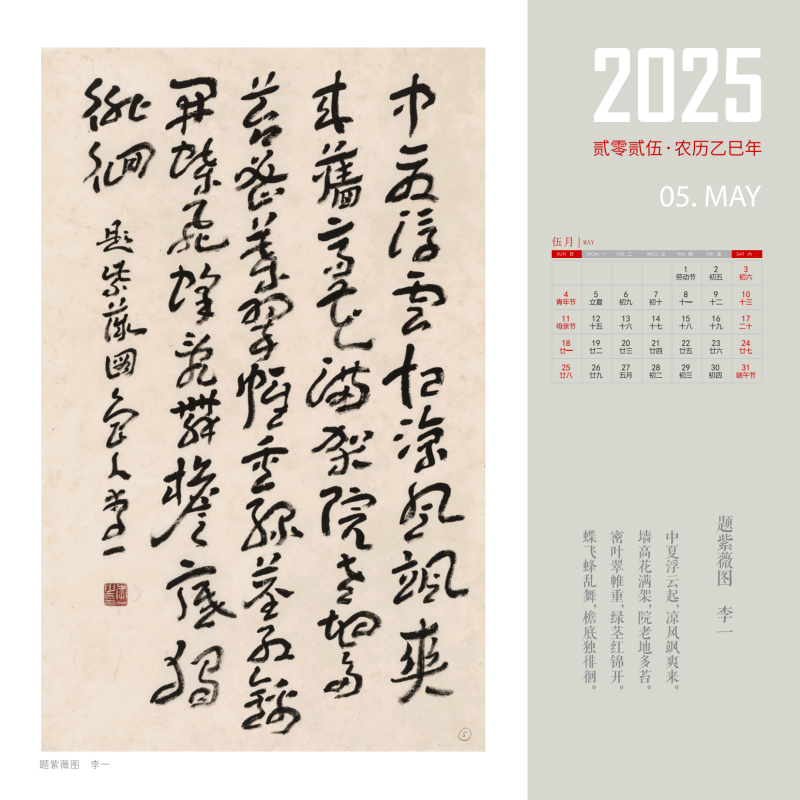 中夏浮雲起涼風颯爽
来墻高花滿架院老地多
苔密葉翠帷重緑莖紅錦
開蝶飛蜂亂舞檐底獨
徘徊
題紫薇圖 人李一
5
题紫薇图 李一
2025
贰零贰伍·农历乙巳年
05. MAY
伍月 | MAY
SUN 日 MON 一 TUE 二 WED 三 THU 四 FRI 五 SAT 六
1 2 3
劳动节 初五 初六
4 5 6 7 8 9 10
青年节 立夏 初九 初十 十一 十二 十三
11 12 13 14 15 16 17
母亲节 十五 十六 十七 十八 十九 二十
18 19 20 21 22 23 24
廿一 廿二 廿三 廿四 廿五 廿六 廿七
25 26 27 28 29 30 31
廿八 廿九 五月 初二 初三 初四 端午节
题紫薇图 李一
中夏浮云起，凉风飒爽来。
墙高花满架，院老地多苔。
密叶翠帷重，绿茎红锦开。
蝶飞蜂乱舞，檐底独徘徊。